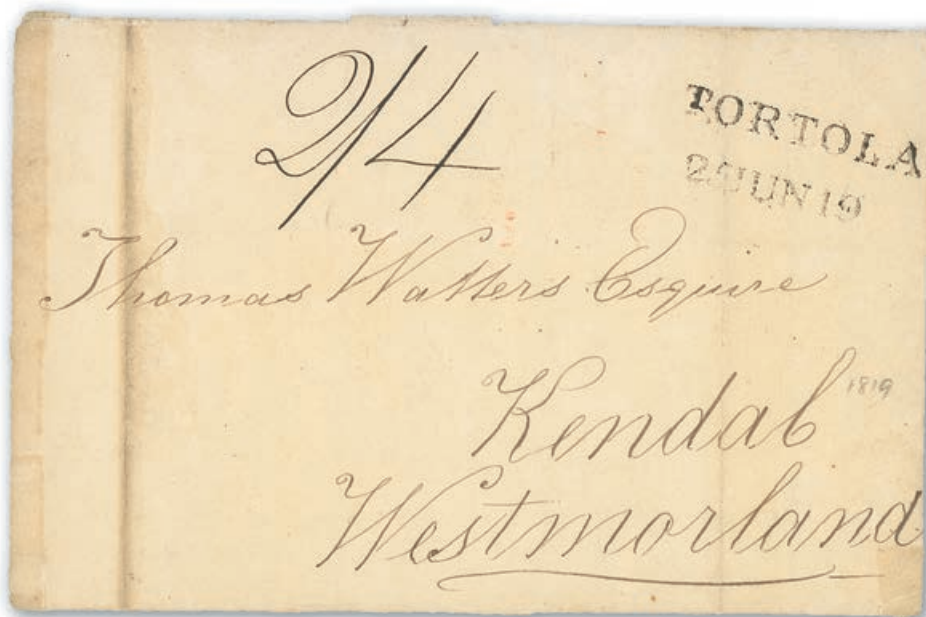 2/4
TORTOLA
2 JUN 19
Thomas Watters Esquire
Kendal
1819
Westmorland